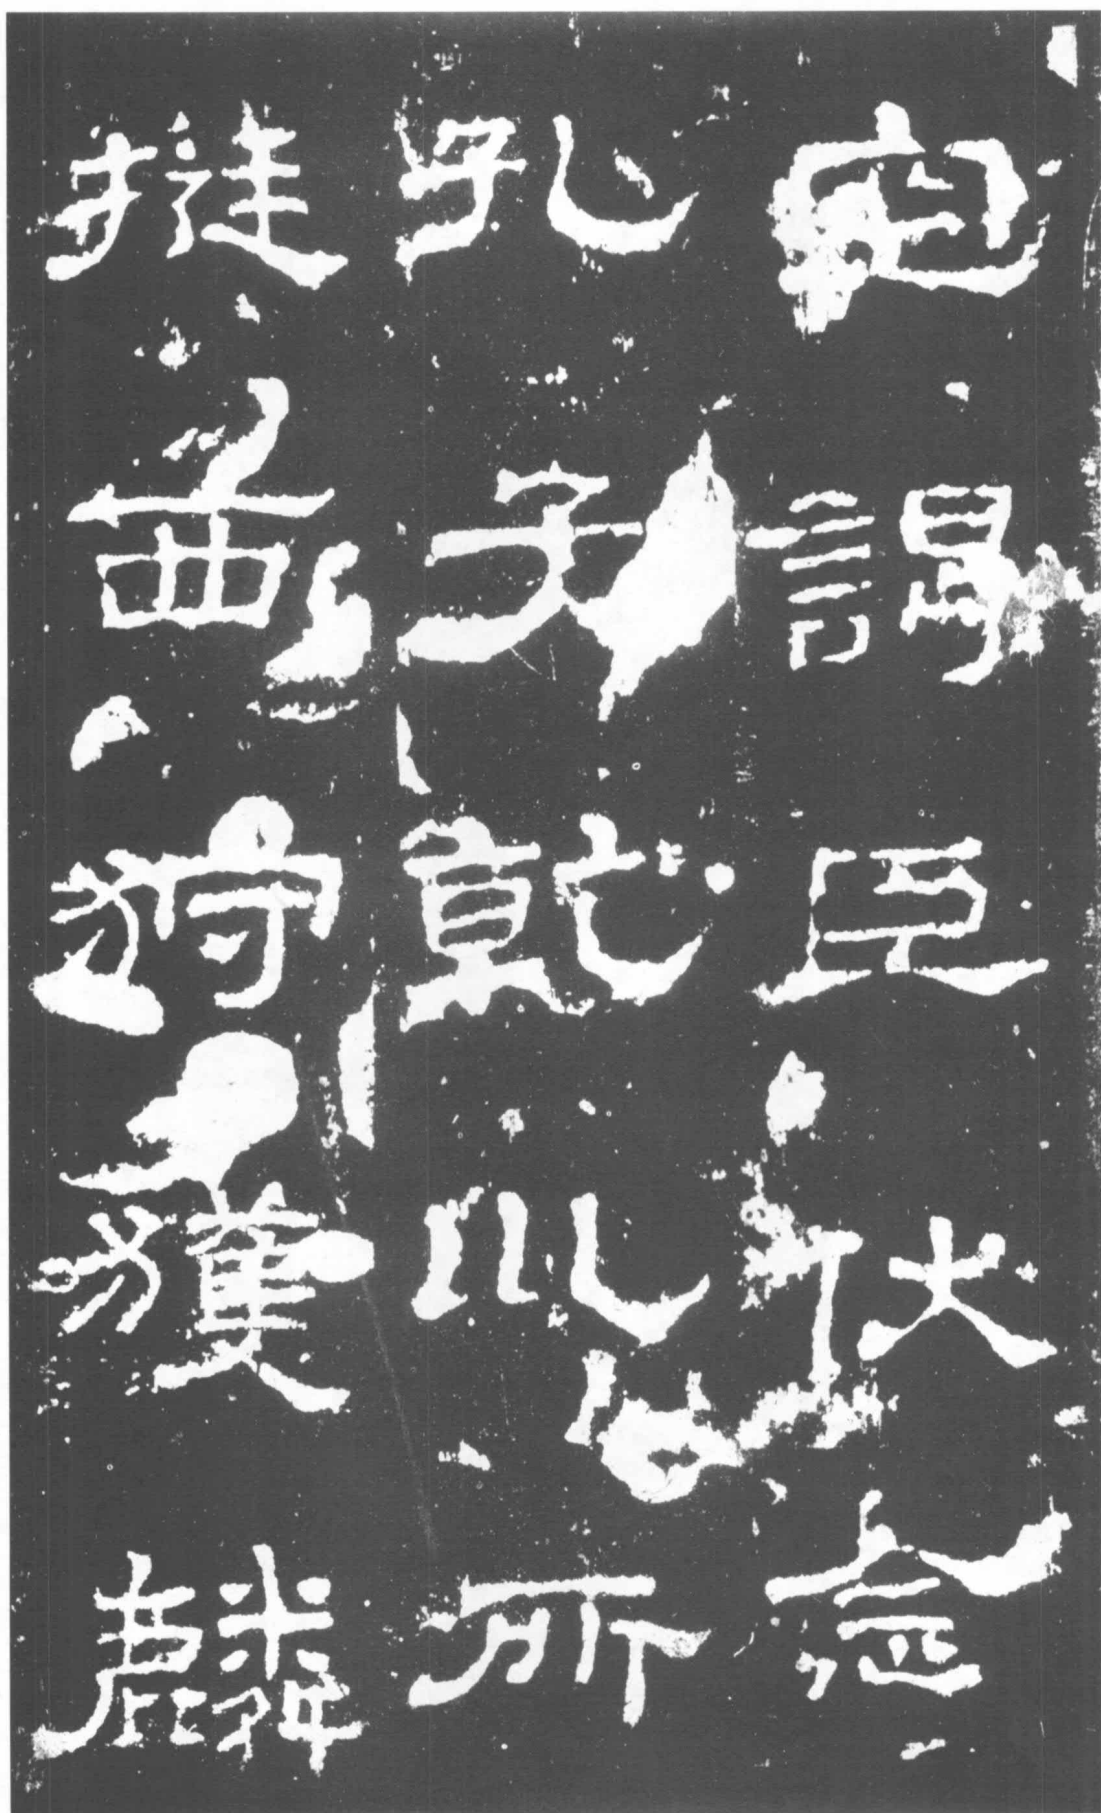 空謁臣伏念
孔子乾巛所
挺西狩獲麟